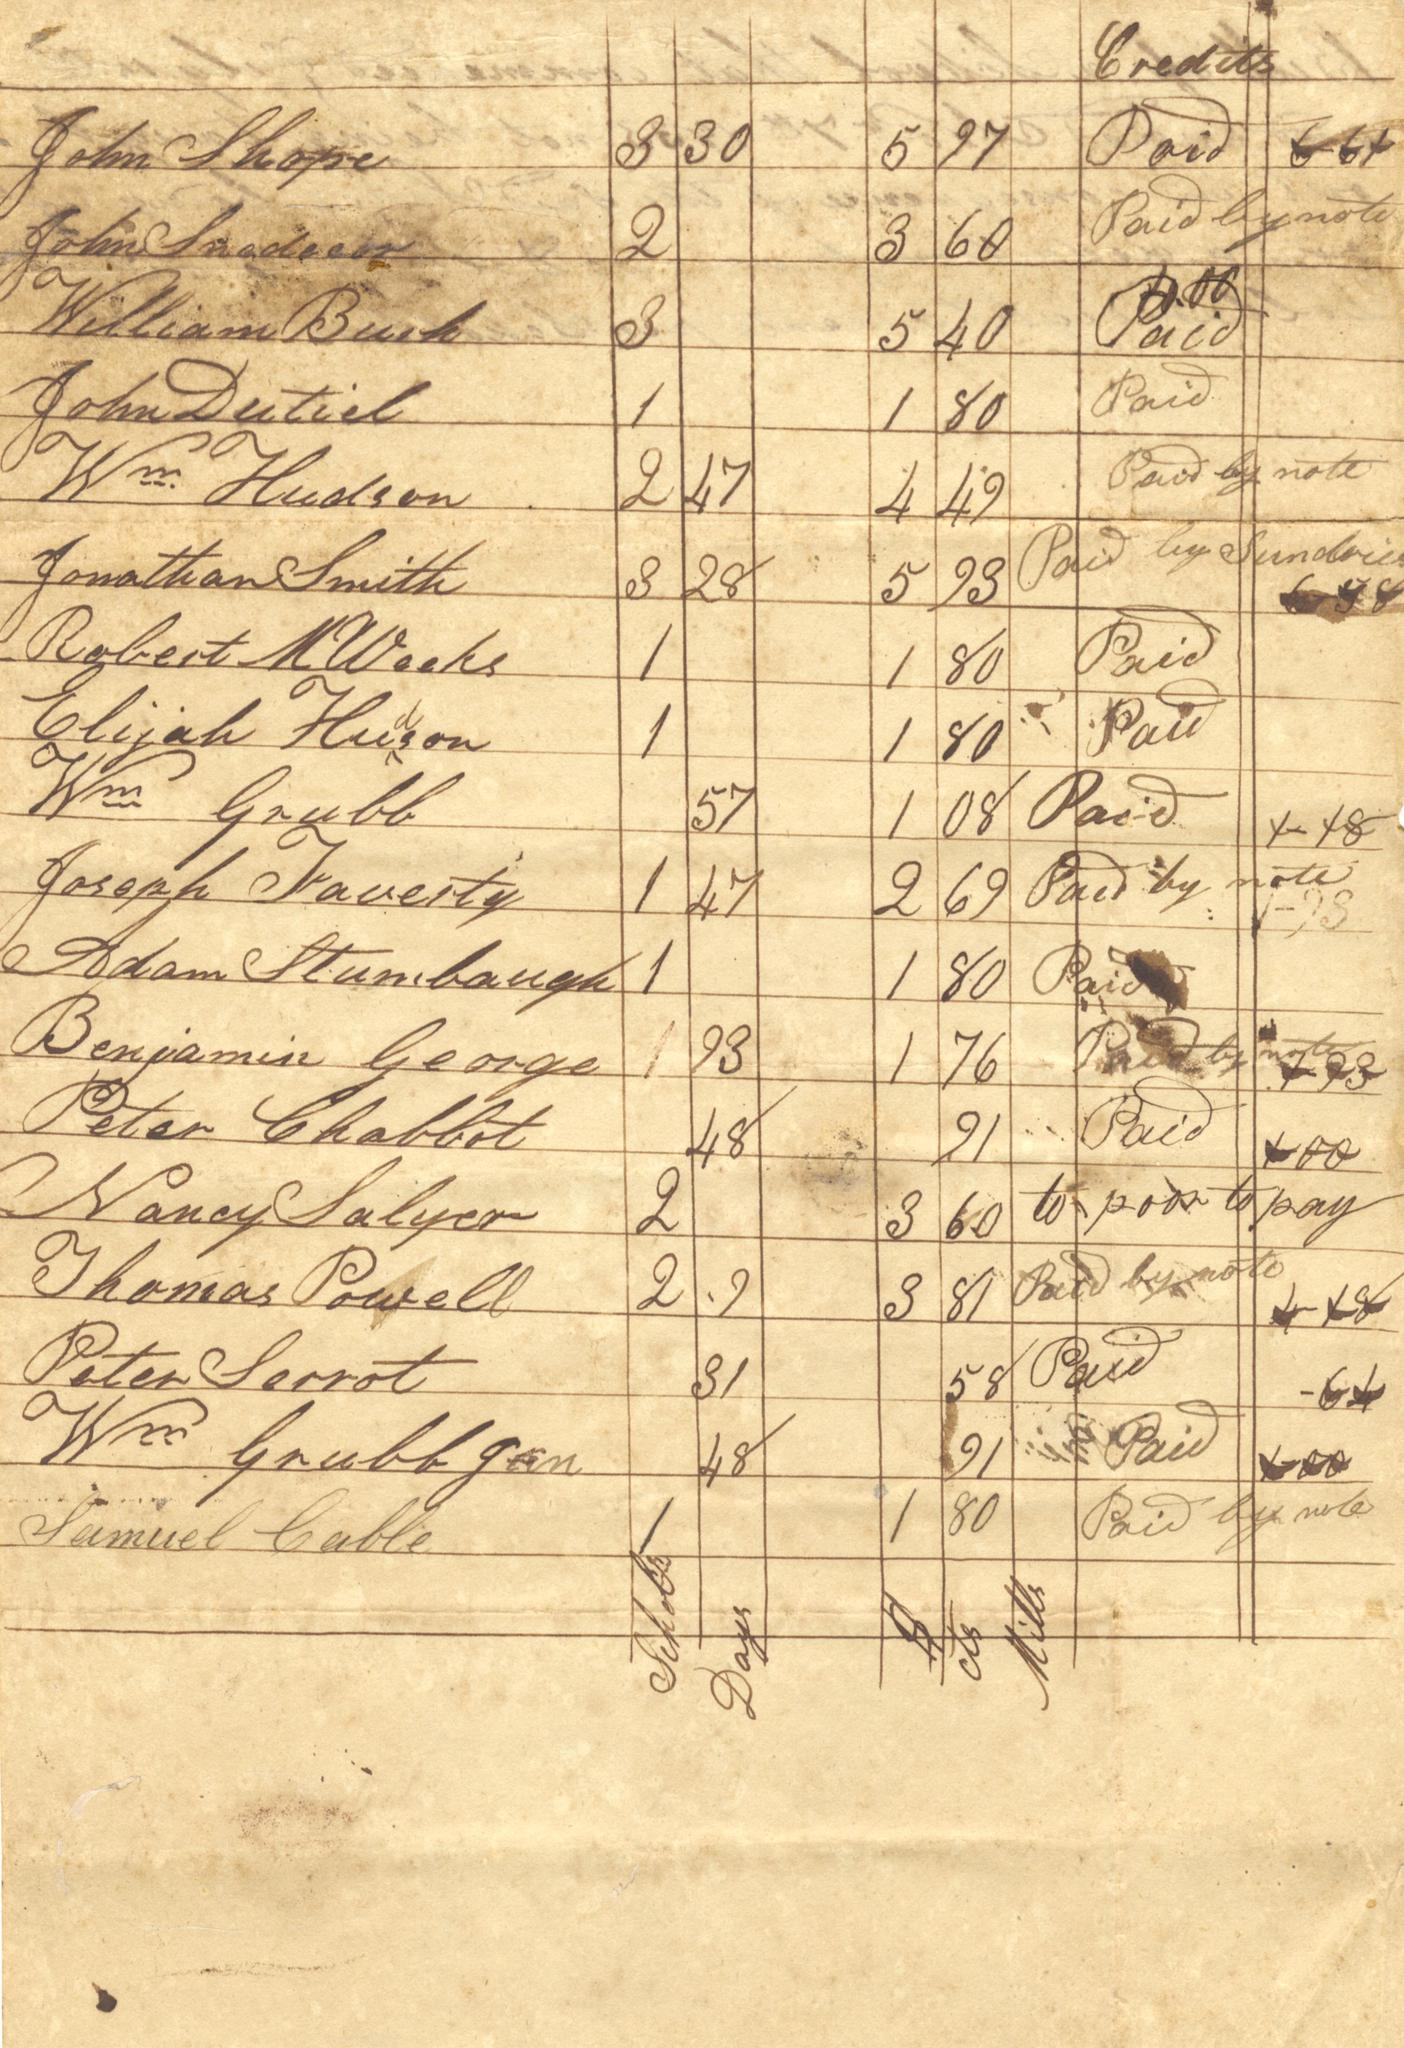 Credits
John Shope 3 30 5 97 Paid
John Snedecor 2 3 60 Paid by note
William Bush 3 5 40 Paid
John Deitiel 1 1 80 Paid
Wm Hudson 2 47 4 49 Paid by note
Jonathan Smith 3 28 5 93 Paid by Sundries
Robert M Weeks 1 1 80 Paid
Elijah Hudson 1 1 80 Paid
Wm Grubb 57 1 08 Paid
Joseph Faverty 1 47 2 69 Paid by note
1-93
Adam Stumbaugh 1 1 80 Paid
Benjamin George 1 93 1 76 Paid by note
Peter Chabbot 48 91 Paid
Nancy Salyer 2 3 60 to poor to pay
Thomas Powell 2 9 3 81 Paid by note
Peter Serrot 31 58 Paid
Wm Grubb Jun 48 91 Paid
Samuel Cable 1 1 80 Paid by note
Schols Days $ cts Mills